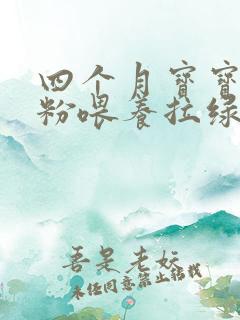 四个月宝宝
粉喂养拉绿
吾是老妖
未经同意禁止搭我